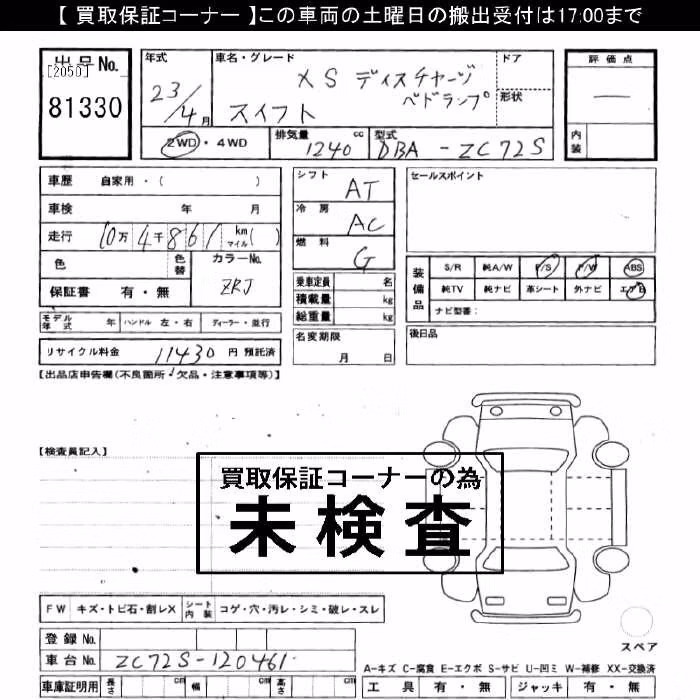 【 買取保証コーナー 】この車両の土曜日の搬出受付は17:00まで
出品No.
[2050]
81330
年式
23/4月
車名・グレード
XS ディスチャージ
ヘッドランプ
スイフト
ドア
形状
評価点
―
内装
2WD・4WD
排気量 1240 cc
型式 DBA - ZC72S
車歴 自家用・( )
車検 年 月
走行 10万4千861 km マイル( )
色
色替
カラーNo. ZRJ
保証書 有・無
シフト AT
冷房 AC
燃料 G
乗車定員 名
積載量 kg
総重量 kg
セールスポイント
装備品
S/R 純A/W P/S P/W ABS
純TV 純ナビ 革シート 外ナビ エアB
ナビ型番:
モデル年式 年 ハンドル 左・右 ディーラー・並行
名変期限
月 日
後日品
リサイクル料金 11430 円 預託済
【出品店申告欄(不良箇所・欠品・注意事項等)】
【検査員記入】
買取保証コーナーの為
未検査
FW キズ・トビ石・割レX シート内装 コゲ・穴・汚レ・シミ・破レ・スレ
登録No.
車台No. ZC72S-120461
スペア
A-キズ C-腐食 E-エクボ S-サビ U-凹ミ W-補修 XX-交換済
車庫証明用 長さ cm 幅 cm 高さ cm
工具 有・無 ジャッキ 有・無